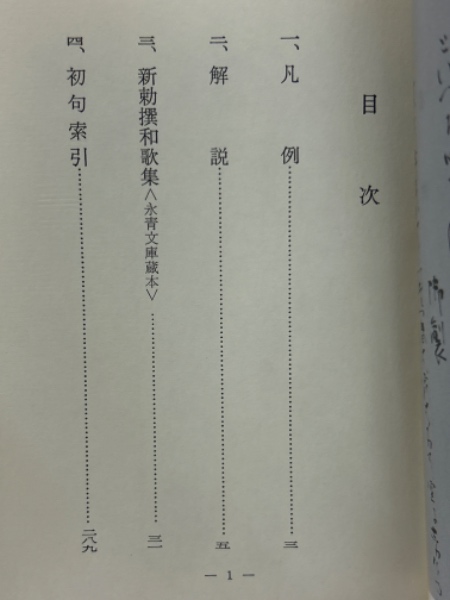 目次
一、凡例……三
二、解説……五
三、新勅撰和歌集〈永青文庫蔵本〉……三一
四、初句索引……二八九
— 1 —
御製